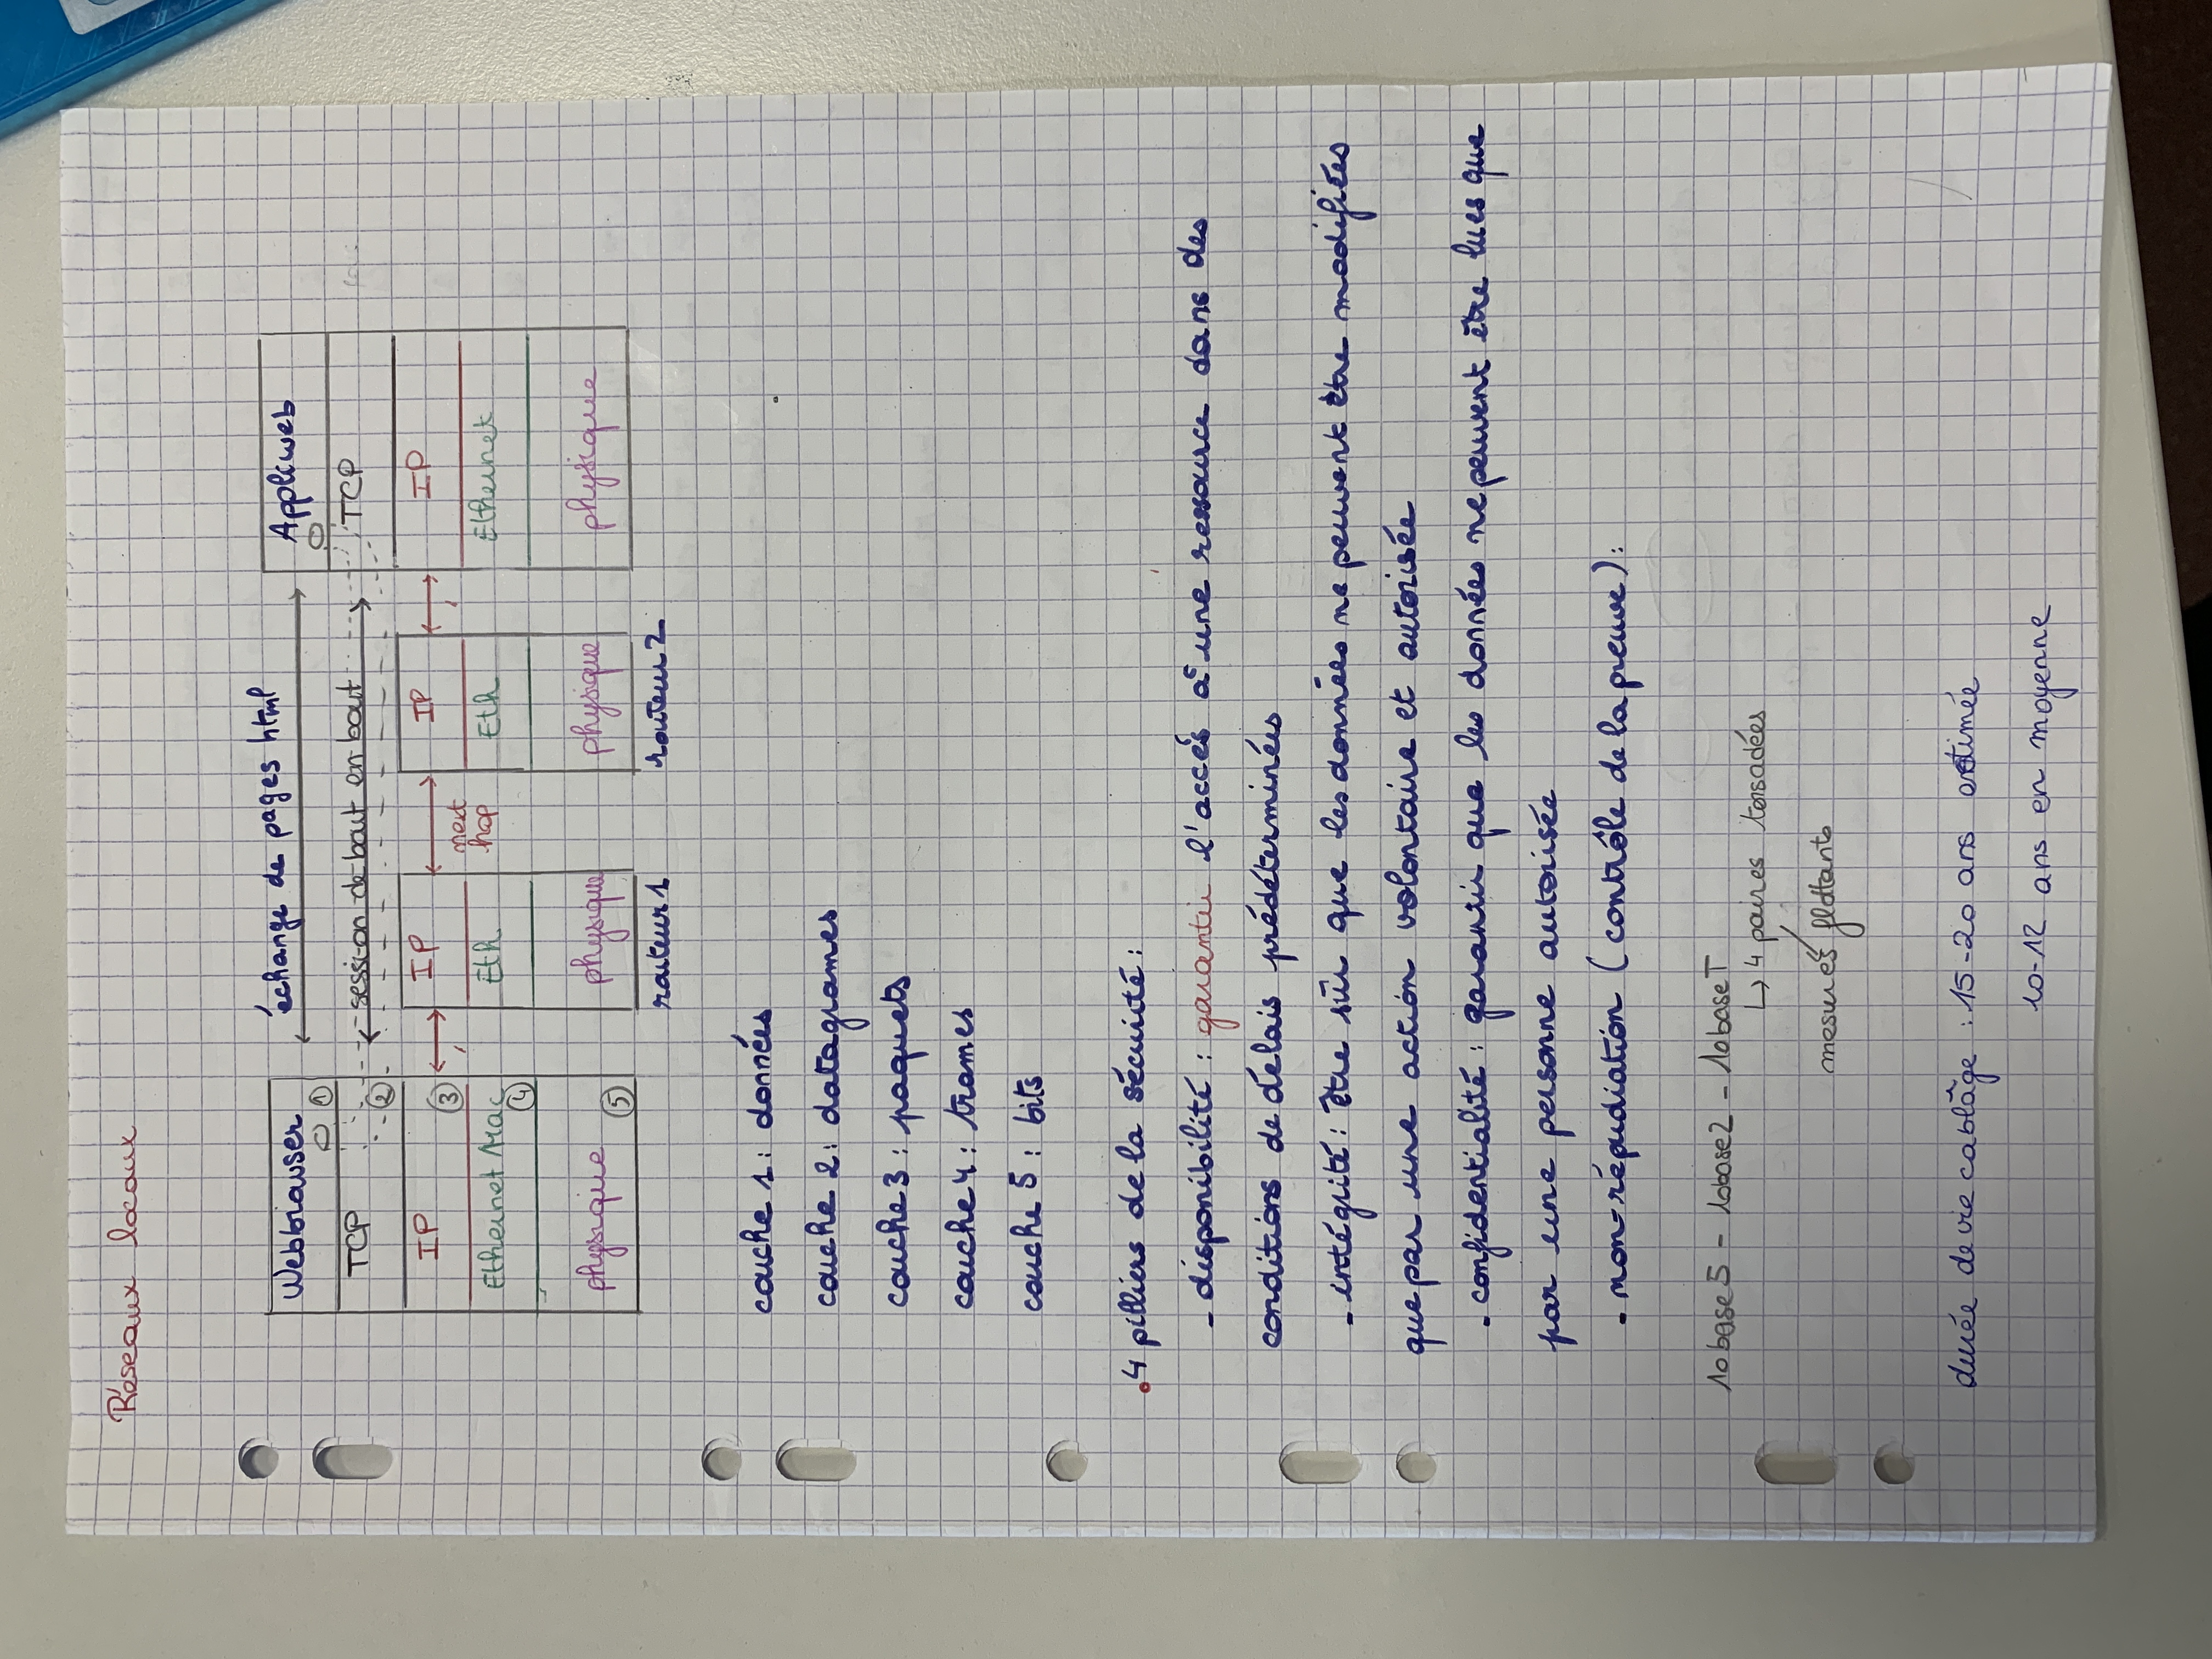 Réseaux locaux
Webbrowser
①
échange de pages html
Appliweb
TCP
②
session de bout en bout
TCP
IP
③
IP
next
hop
IP
IP
Ethernet Mac
④
Eth
Eth
Ethernet
physique
⑤
physique
physique
physique
routeur 1
routeur 2
couche 1 : données
couche 2 : datagrames
couche 3 : paquets
couche 4 : trames
couche 5 : bits
• 4 pilliers de la sécurité :
- disponibilité : garantir l'accès à une ressource dans des
conditions de délais prédéterminées
- intégrité : être sûr que les données ne peuvent être modifiées
que par une action volontaire et autorisée
- confidentialité : garantir que les données ne peuvent être lues que
par une personne autorisée
- non-répudiation (contrôle de la preuve) :
10base5 - 10base2 - 10baseT
↳ 4 paires torsadées
mesures flottants
durée de vie cablâge : 15-20 ans estimée
10-12 ans en moyenne